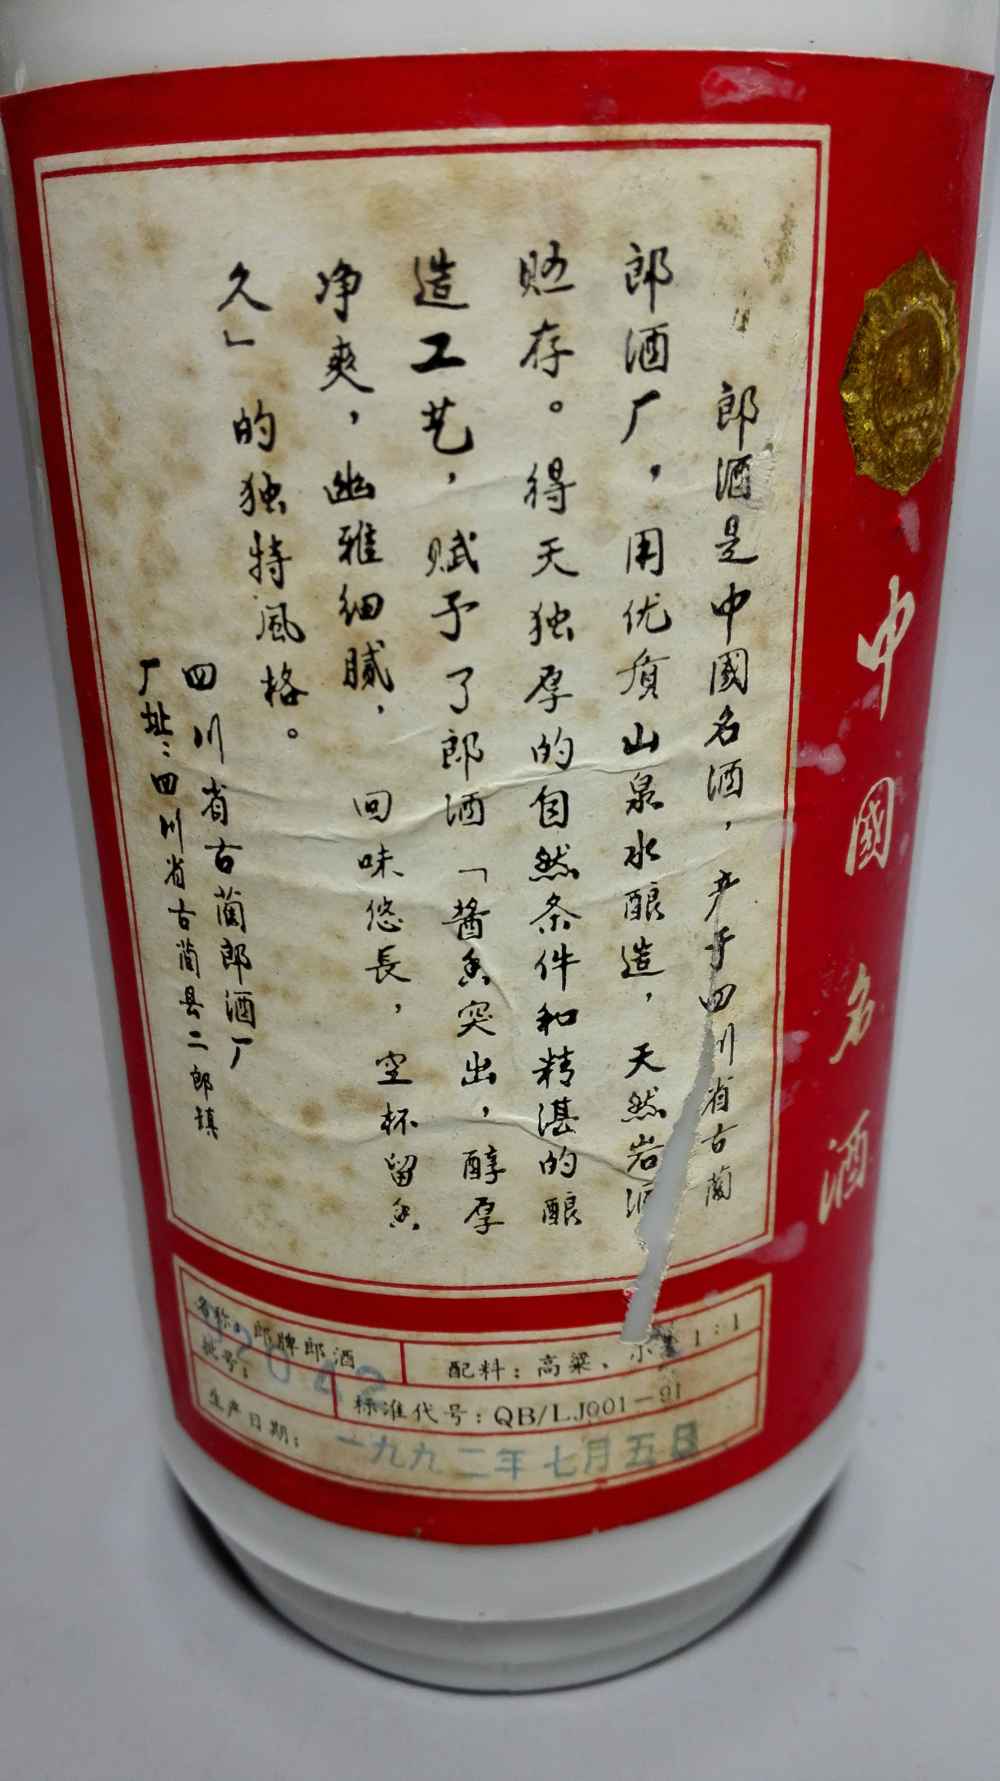 中國名酒
郎酒是中國名酒，产于四川省古蔺
郎酒厂，用优质山泉水酿造，天然岩
贮存。得天独厚的自然条件和精湛的酿
造工艺，赋予了郎酒「酱香突出，醇厚
净爽，幽雅细腻，回味悠長，空杯留香
久」的独特風格。
四川省古蔺郎酒厂
厂址：四川省古蔺县二郎镇
名称：郎牌郎酒
配料：高粱、小麦1：1
批号：
标准代号：QB/LJ001－91
生产日期：一九九二年七月五日